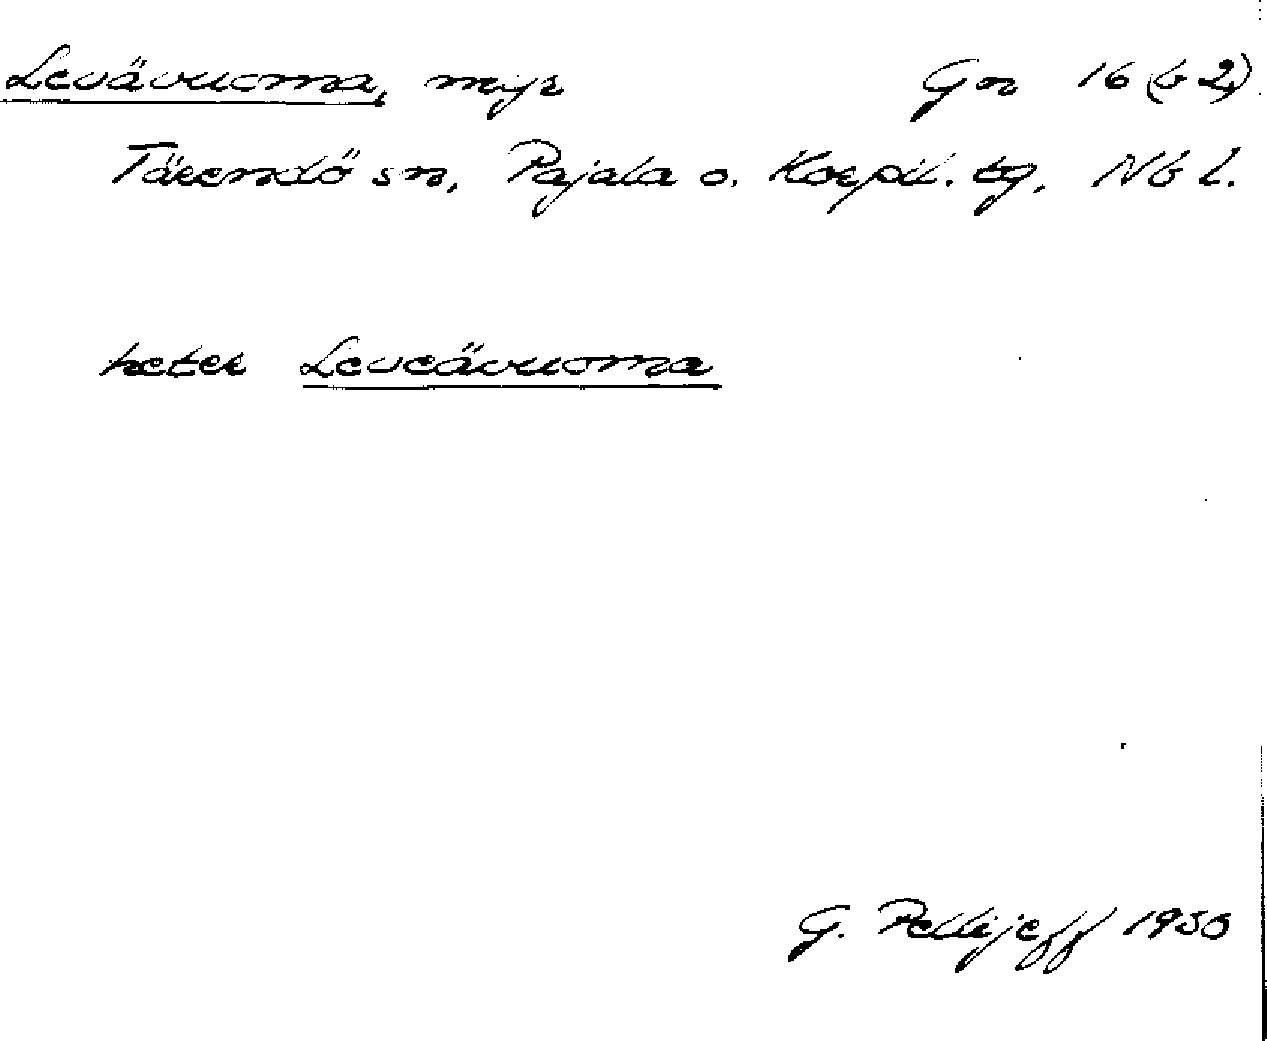 Levävuoma, myr Gn 16 (b 2)
Tärendö sn, Pajala o. Korpil. tg, Nb l.
heter Leveävuoma
G. Pellijeff 1950